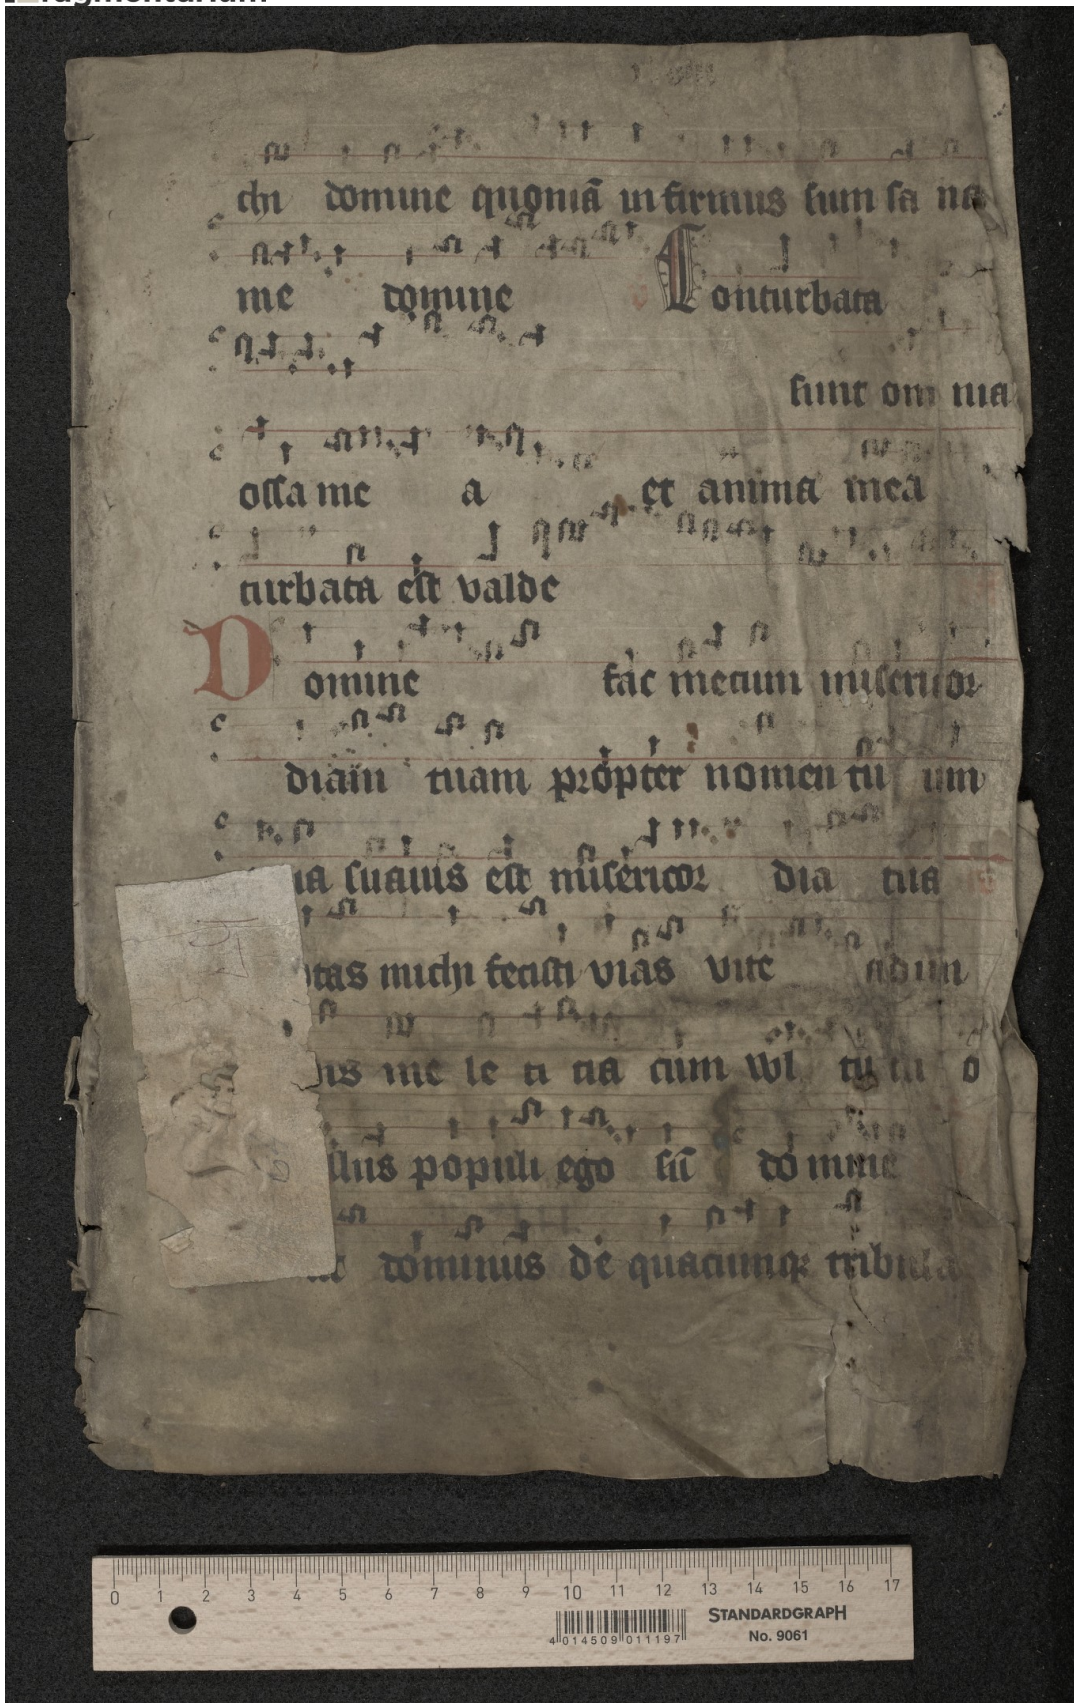 chi domine quoniā infirmus sum sa na
me domine Conturbata
sunt om nia
ossa me a et anima mea
turbata est valde
Domine fac mecum misericor
diam tuam propter nomen tu um
ia suauis est misericor dia tua
otas michi fecisti vias vite adim
me le ti cia cum wl tu tu o
populi ego sū do mine
dominus de quacumqꝫ tribula
0 1 2 3 4 5 6 7 8 9 10 11 12 13 14 15 16 17
STANDARDGRAPH
No. 9061
4 014509 011197